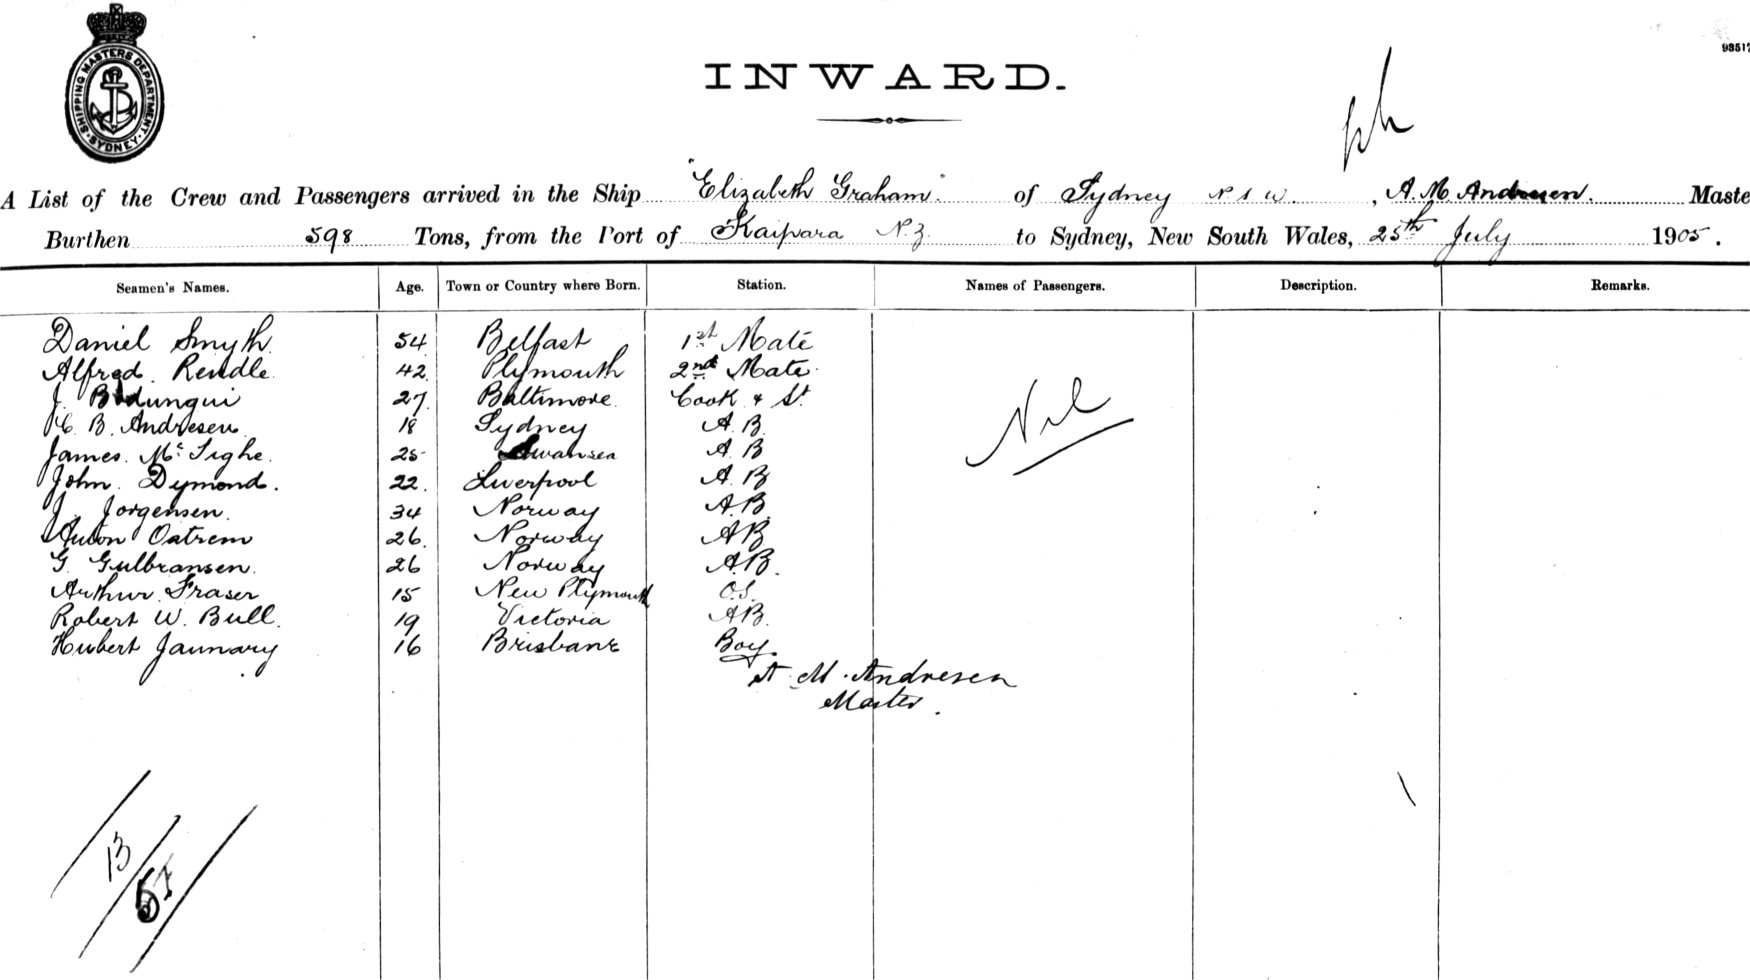 SHIPPING MASTERS DEPARTMENT. SYDNEY
93517
INWARD.
A List of the Crew and Passengers arrived in the Ship "Elizabeth Graham" of Sydney N S W. , A. M. Andresen. Maste
Burthen 598 Tons, from the Port of Kaipara N.Z. to Sydney, New South Wales, 25th July 1905.
Seamen's Names. Age. Town or Country where Born. Station. Names of Passengers. Description. Remarks.
Daniel Smyth 54 Belfast 1st Mate
Alfred Rendle 42 Plymouth 2nd Mate
J. 27 Baltimore Cook & St
C. B. Andresen 18 Sydney A.B.
James McTighe 25 Swansea A.B
John Dymond. 22. Liverpool A.B
J. Jorgensen. 34 Norway A.B.
Anton Ostrem 26. Norway AB
G. Gulbransen. 26 Norway A.B.
Arthur Fraser 15 New Plymouth O.S.
Robert W. Bull. 19 Victoria AB.
Hubert Jannary 16 Brisbane Boy.
Nil
A. M. Andresen
Master.
13